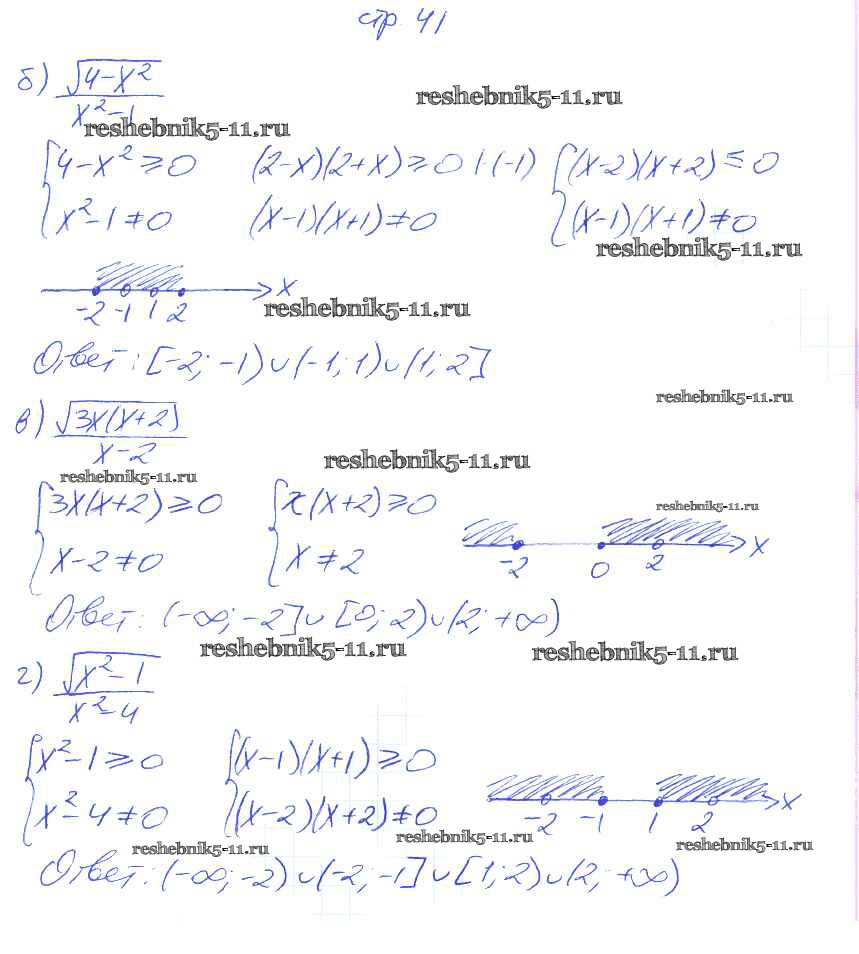 стр. 41
б) √(4-x²)
x²-1
reshebnik5-11.ru
reshebnik5-11.ru
{4-x² ≥ 0 (2-x)(2+x) ≥ 0 |·(-1) {(x-2)(x+2) ≤ 0
x²-1 ≠ 0 (x-1)(x+1) ≠ 0 (x-1)(x+1) ≠ 0
reshebnik5-11.ru
x
-2 -1 1 2
reshebnik5-11.ru
Ответ: [-2; -1) ∪ (-1; 1) ∪ (1; 2]
reshebnik5-11.ru
в) √(3x(x+2))
x-2
reshebnik5-11.ru
reshebnik5-11.ru
{3x(x+2) ≥ 0 {x(x+2) ≥ 0
reshebnik5-11.ru
x-2 ≠ 0 x ≠ 2
x
-2 0 2
Ответ: (-∞; -2] ∪ [0; 2) ∪ (2; +∞)
reshebnik5-11.ru
reshebnik5-11.ru
г) √(x²-1)
x²-4
{x²-1 ≥ 0 {(x-1)(x+1) ≥ 0
x²-4 ≠ 0 (x-2)(x+2) ≠ 0
x
-2 -1 1 2
reshebnik5-11.ru
reshebnik5-11.ru
reshebnik5-11.ru
Ответ: (-∞; -2) ∪ (-2; -1] ∪ [1; 2) ∪ (2; +∞)